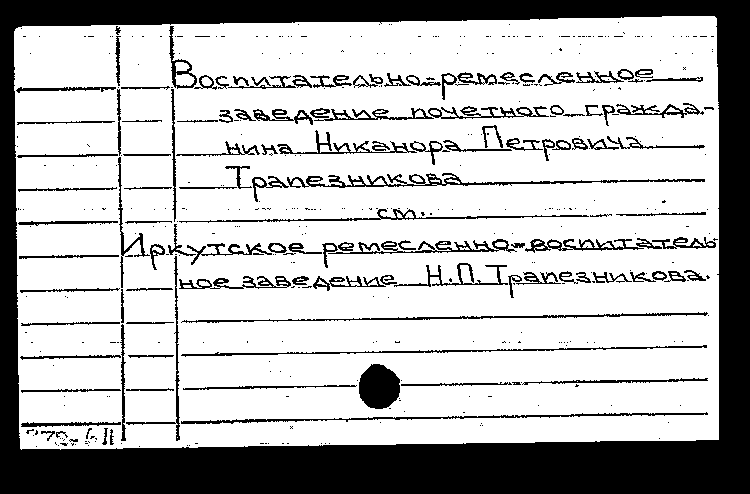 Воспитательно-ремесленное
заведение почетного гражда-
нина Никанора Петровича
Трапезникова
см.
Иркутское ремесленно-воспитатель
ное заведение Н.П. Трапезникова.